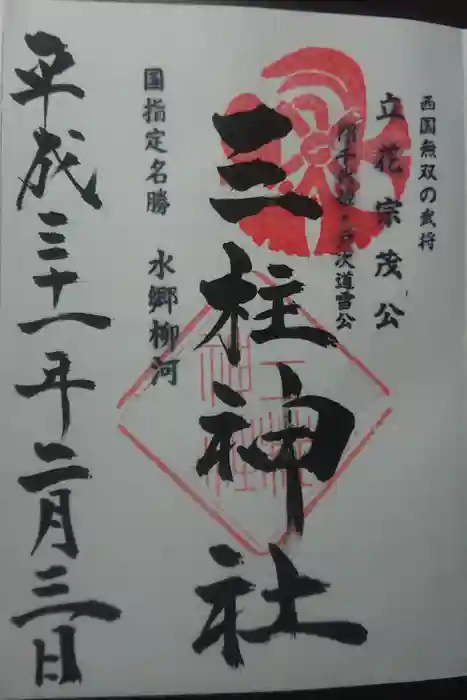 西国無双の武将
立花宗茂公
誾千代姫・戸次道雪公
三柱神社
国指定名勝 水郷柳河
平成三十一年二月三日